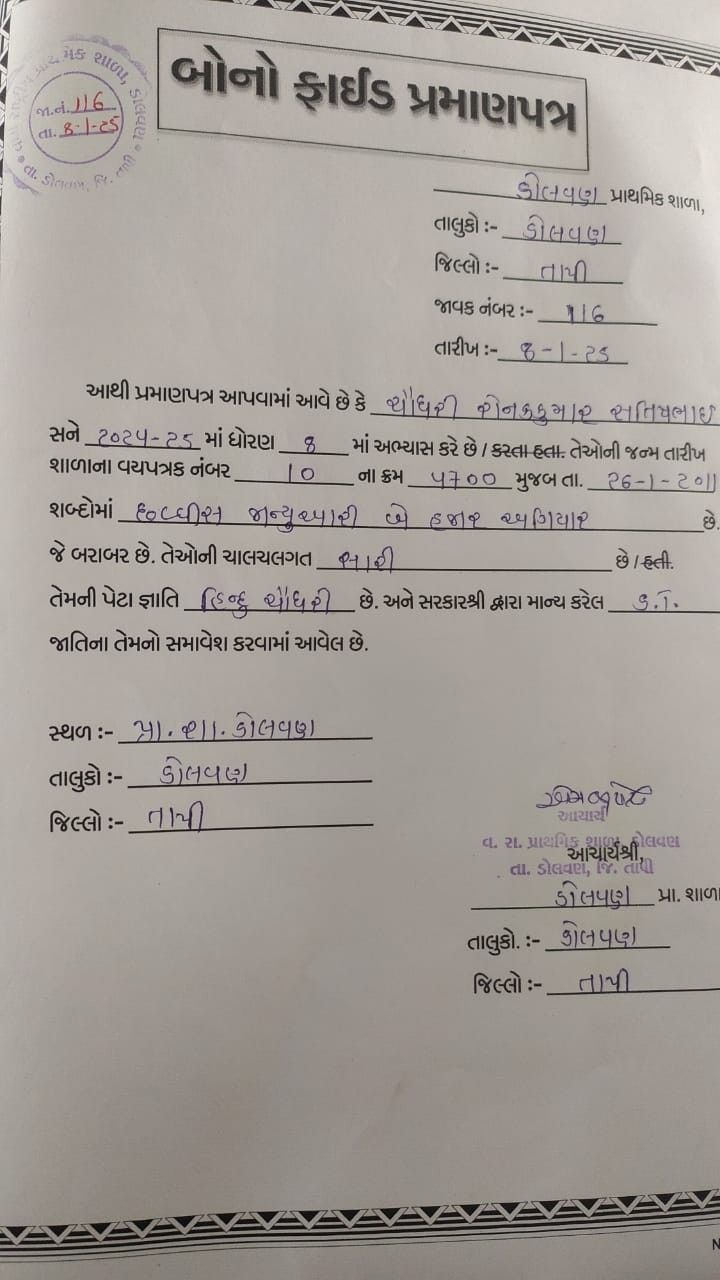 પ્રાથમિક શાળા, ડોલવણ
જા.નં. 116
તા. 8-1-25
તા. ડોલવણ, જિ. તાપી
બોનો ફાઈડ પ્રમાણપત્ર
ડોલવણ પ્રાથમિક શાળા,
તાલુકો :- ડોલવણ
જિલ્લો :- તાપી
જાવક નંબર :- 116
તારીખ :- 8-1-25
આથી પ્રમાણપત્ર આપવામાં આવે છે કે ચૌધરી રોનકકુમાર સતિષભાઇ
સને ૨૦૨૪-૨૫ માં ધોરણ 8 માં અભ્યાસ કરે છે / કરતા હતા. તેઓની જન્મ તારીખ
શાળાના વયપત્રક નંબર 10 ના ક્રમ ૫૭૦૦ મુજબ તા. ૨6-1-૨૦11
શબ્દોમાં છવ્વીસ જાન્યુઆરી બે હજાર અગિયાર છે.
જે બરાબર છે. તેઓની ચાલચલગત સારી છે / હતી.
તેમની પેટા જ્ઞાતિ હિન્દુ ચૌધરી છે. અને સરકારશ્રી દ્વારા માન્ય કરેલ
જાતિના તેમનો સમાવેશ કરવામાં આવેલ છે.
સ્થળ :- પ્રા. શા. ડોલવણ
તાલુકો :- ડોલવણ
જિલ્લો :- તાપી
આચાર્ય
વ. રા. પ્રાથમિક શાળા, ડોલવણ
આચાર્યશ્રી,
તા. ડોલવણ, જિ. તાપી
ડોલવણ પ્રા. શાળા
તાલુકો. :- ડોલવણ
જિલ્લો :- તાપી
N